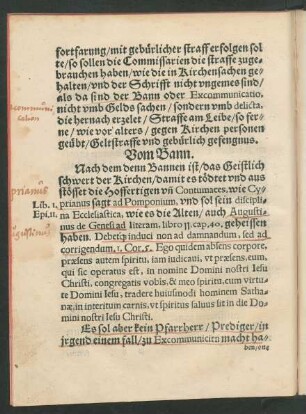 fortfarung/mit gebürlicher straff erfolgen sol
te/so sollen die Commissarien die straffe zuge-
brauchen haben/wie die in Kirchensachen ge-
halten/vnd der Schrifft nicht vngemes sind/
als da sind der Bann oder Excommunicatio,
nicht vmb Gelds sachen / sondern vmb delicta,
die hernach erzelet / Straffe am Leibe/so fer-
ne/wie vor alters / gegen Kirchen personen
geübt/Geltstraffe vnd gebürlich gefengnus.
Vom Bann.
Nach dem denn Bannen ist/das Geistlich
schwert der Kirchen/damit es tödtet vnd aus
stösset die Hoffertigen vn̄ Contumaces, wie Cy-
Lib. 1. prianus sagt ad Pomponium, vnd sol sein disciplì-
Epi.11. na Ecclesiastica, wie es die Alten/ auch Augusti-
nus de Genesi ad literam, libro 11. cap. 40. geheissen
haben. Debetq; induci non ad damnandum, sed ad
corrigendum, 1. Cor. 5. Ego quidem absens corpore,
præsens autem spiritu, iam iudicaui, vt præsens, eum,
qui sic operatus est, in nomine Domini nostri Iesu
Christi, congregatis vobis, & meo spiritu, cum virtu-
te Domini Iesu, tradere huiusmodi hominem Satha-
næ, in interitum carnis, vt spiritus saluus sit in die Do-
mini nostri Iesu Christi.
Es sol aber kein Pfarrherr / Prediger / in
jrgend einem fall/zu Excommunicirn macht ha-
ben,on